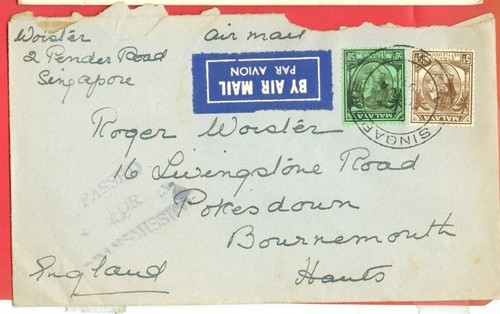 Worster
2 Pender Road
Singapore
air mail
BY AIR MAIL
PAR AVION
MALAYA
MALAYA
SINGAP
Roger Worster
16 Livingstone Road
Pokesdown
Bournemouth
Hants
England
PASSED
FOR
TRANSMISSION